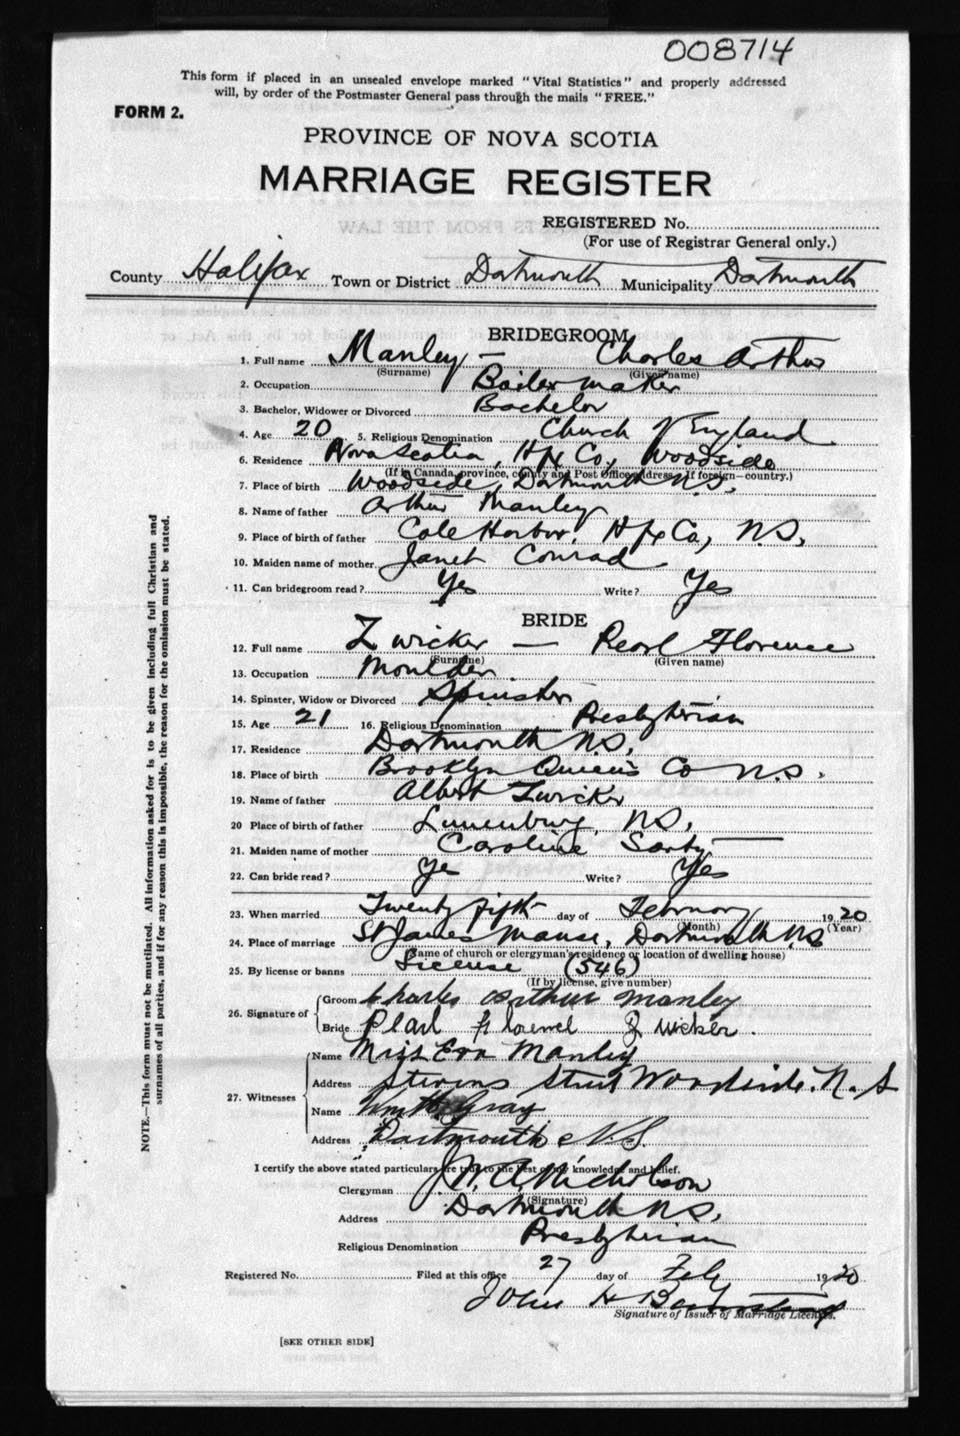 008714
This form if placed in an unsealed envelope marked "Vital Statistics" and properly addressed
will, by order of the Postmaster General pass through the mails "FREE."
FORM 2.
PROVINCE OF NOVA SCOTIA
MARRIAGE REGISTER
REGISTERED No.
(For use of Registrar General only.)
County Halifax Town or District Dartmouth Municipality Dartmouth
BRIDEGROOM
1. Full name Manley — Charles Arthur
(Surname) (Given name)
2. Occupation Boiler maker
3. Bachelor, Widower or Divorced Bachelor
4. Age 20 5. Religious Denomination Church of England
6. Residence Nova Scotia, Hfx Co., Woodside
(If in Canada, province, county and Post Office address, if foreign—country.)
7. Place of birth Woodside, Dartmouth N.S.
8. Name of father Arthur Manley
9. Place of birth of father Cole Harbor, Hfx Co, N.S,
10. Maiden name of mother Janet Conrad
11. Can bridegroom read? Yes Write? Yes
BRIDE
12. Full name Zwicker — Pearl Florence
(Surname) (Given name)
13. Occupation Moulder
14. Spinster, Widow or Divorced Spinster
15. Age 21 16. Religious Denomination Presbyterian
17. Residence Dartmouth N.S,
18. Place of birth Brooklyn Queen's Co N.S.
19. Name of father Albert Zwicker
20 Place of birth of father Lunenburg, N.S,
21. Maiden name of mother Caroline
22. Can bride read? Ye Write? Yes
23. When married Twenty fifth day of February 1920
(Month) (Year)
24. Place of marriage St James Manse, Dartmouth N.S
(Name of church or clergyman's residence or location of dwelling house)
25. By license or banns License (546)
(If by license, give number)
26. Signature of Groom Charles Arthur Manley
Bride Pearl Zwicker.
27. Witnesses Name Miss Eva Manley
Address Stevens Street Woodside. N.S
Name Wm H. Gray
Address Dartmouth N.S.
I certify the above stated particulars are true to the best of my knowledge and belief.
Clergyman J. W. A. Nicholson
(Signature)
Address Dartmouth N.S,
Religious Denomination Presbyterian
Registered No. Filed at this office 27 day of Feby 1920
John H
Signature of Issuer of Marriage Licenses.
[SEE OTHER SIDE]
NOTE.—This form must not be mutilated. All information asked for is to be given including full Christian and
surnames of all parties, and if for any reason this is impossible, the reason for the omission must be stated.